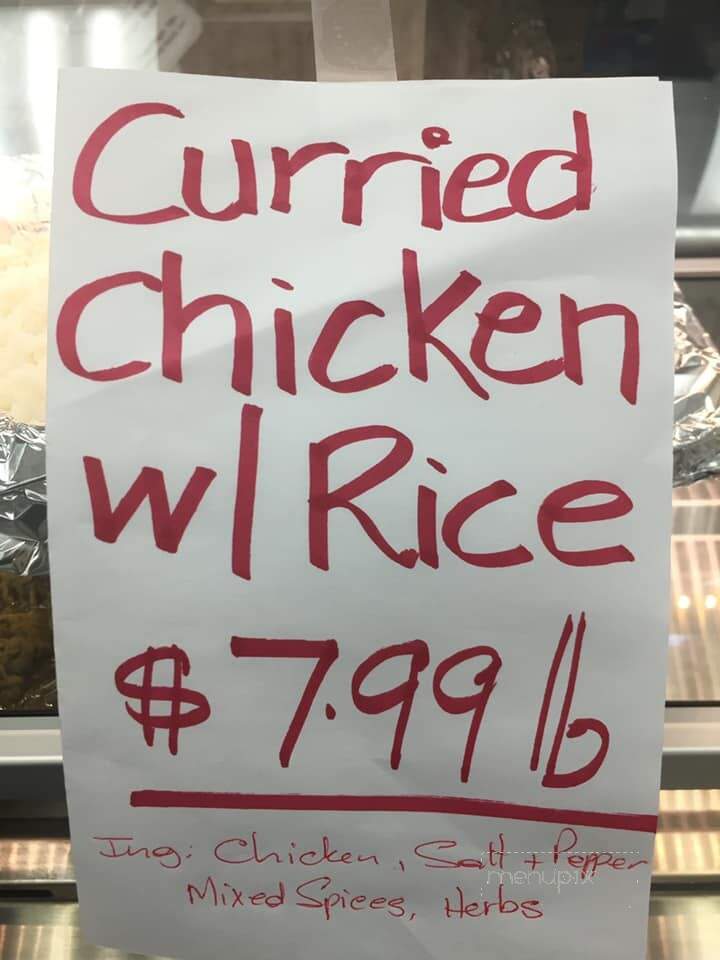 Curried
Chicken
w/ Rice
$7.99 lb
Ing: Chicken, Salt + Pepper
menupix
Mixed Spices, Herbs